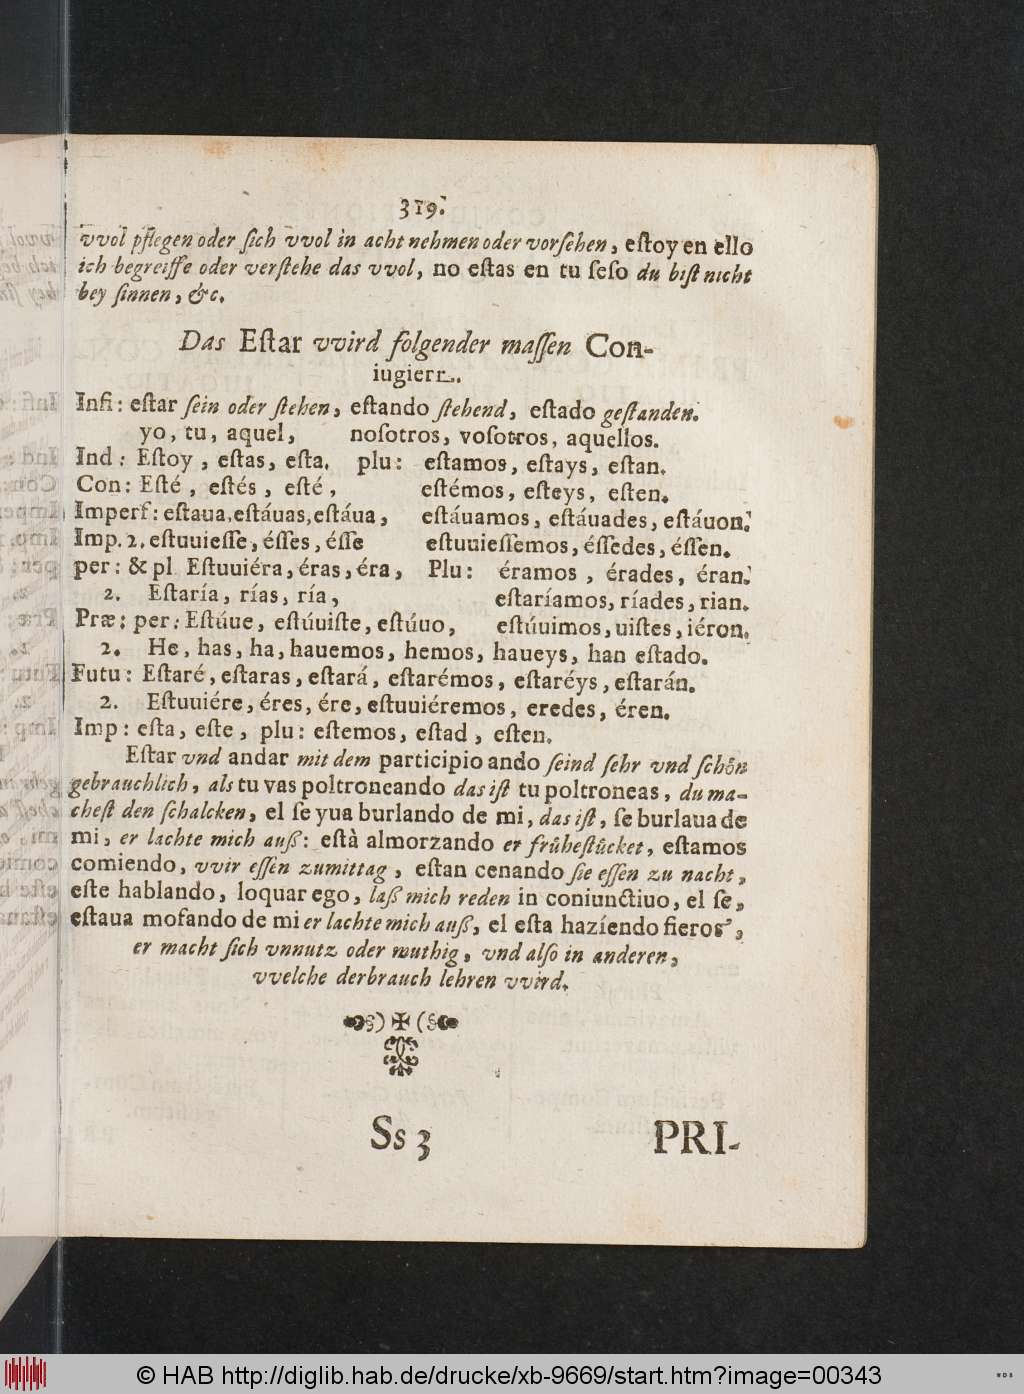 319.
vvol pflegen oder ſich vvol in acht nehmen oder vorſehen, eſtoy en ello
ich begreiffe oder verſtehe das vvol, no eſtas en tu ſeſo du biſt nicht
bey ſinnen, &c.
Das Eſtar vvird folgender maſſen Con-
iugiert.
Infi: eſtar ſein oder ſtehen, eſtando ſtehend, eſtado geſtanden.
yo, tu, aquel, noſotros, voſotros, aquellos.
Ind: Eſtoy, eſtas, eſta. plu: eſtamos, eſtays, eſtan.
Con: Eſté, eſtés, eſté, eſtémos, eſteys, eſten.
Imperf: eſtaua, eſtáuas, eſtáua, eſtáuamos, eſtáuades, eſtáuon.
Imp. 2. eſtuuieſſe, éſſes, éſſe eſtuuieſſemos, éſſedes, éſſen.
per: & pl Eſtuuiéra, éras, éra, Plu: éramos, érades, éran.
2. Eſtaría, rías, ría, eſtaríamos, ríades, rian.
Præ: per: Eſtúue, eſtúuiſte, eſtúuo, eſtúuimos, uiſtes, iéron.
2. He, has, ha, hauemos, hemos, haueys, han eſtado.
Futu: Eſtaré, eſtaras, eſtará, eſtarémos, eſtaréys, eſtarán.
2. Eſtuuiére, éres, ére, eſtuuiéremos, eredes, éren.
Imp: eſta, eſte, plu: eſtemos, eſtad, eſten.
Eſtar vnd andar mit dem participio ando ſeind ſehr vnd ſchoͤn
gebrauchlich, als tu vas poltroneando das iſt tu poltroneas, du ma-
cheſt den ſchalcken, el ſe yua burlando de mi, das iſt, ſe burlaua de
mi, er lachte mich auß: eſtà almorzando er fruͤheſtuͤcket, eſtamos
comiendo, vvir eſſen zumittag, eſtan cenando ſie eſſen zu nacht,
eſte hablando, loquar ego, laß mich reden in coniunctiuo, el ſe,
eſtaua mofando de mi er lachte mich auß, el eſta hazíendo fieros,
er macht ſich vnnutz oder muthig, vnd alſo in anderen,
vvelche derbrauch lehren vvird.
Ss 3 PRI-
© HAB http://diglib.hab.de/drucke/xb-9669/start.htm?image=00343